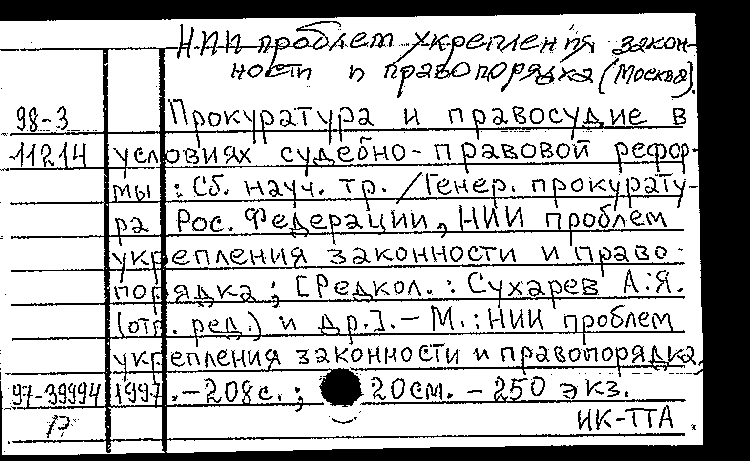 НИИ проблем укрепления закон-
ности и правопорядка (Москва).
98-3 Прокуратура и правосудие в
11214 условиях судебно-правовой рефор-
мы : Сб. науч. тр. / Генер. прокурату-
ра Рос. Федерации, НИИ проблем
укрепления законности и право-
порядка ; [Редкол. : Сухарев А.Я.
(отв. ред.) и др.]. - М. : НИИ проблем
укрепления законности и правопорядка,
97-39994 1997. - 208 с. ; 20 см. - 250 экз.
17 ИК-ТТА.